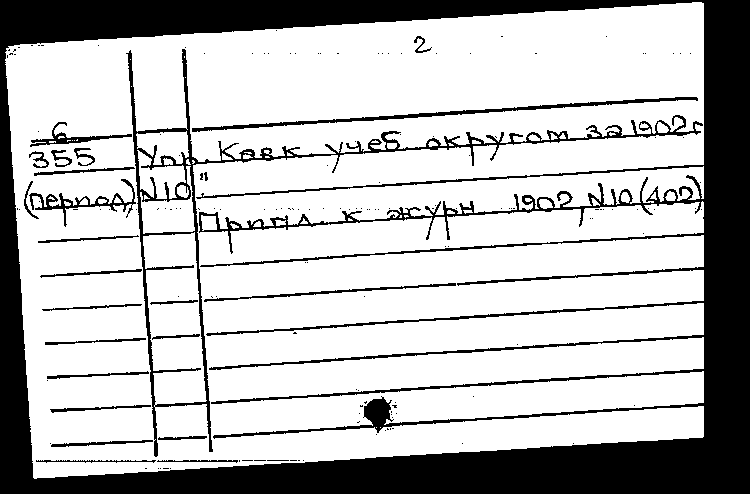 2
6
355 Упр. Кавк учеб округом за 1902 г
(период) N10."
Прилл. к журн 1902, N10 (402)